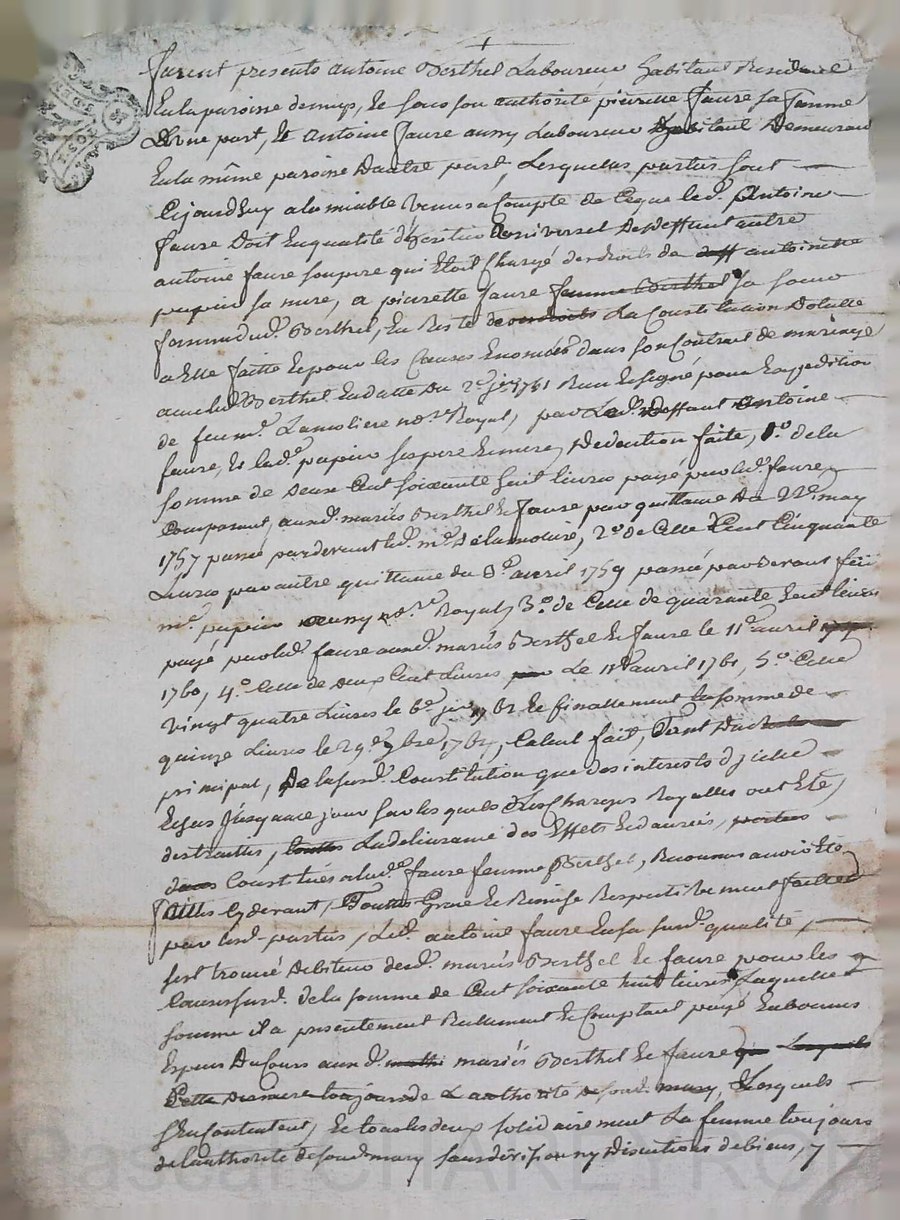 furent présents antoine Berthel Laboureur habitant Residant
En la paroisse de mups, Et sous son authorité pierrette faure sa femme
D'une part, Et antoine faure aussy Laboureur habitant Demeurant
En la même paroisse D'autre part, Lesquelles parties sont
Cejourd'huy a la miable venus a Compte de Ceque led. Antoine
faure Doit En qualité d'héritier universel De deffunt autre
antoine faure son pere qui Etoit Chargé des droits de antoinette
papin sa mere, a pierrette faure femme Berthel sa sœur
femme dud. Berthel, En Reste de ses droits La Constitution Dotalle
a Elle faitte Et pour les Causes Enoncées dans son Contrat de mariage
avec led. Berthel En datte Du 2e 1751 Reçu Et signé pour Expedition
de feu me. Lamoliere nore Royal, par Led. Deffunt Antoine
faure, Et lad. papin ses pere Et mere, Deduction faite, 1o de la
somme de Deux Cent soixante huit livres payé par led. faure
Comparant, auxd. mariés Berthel Et faure par quittance du 22e may
1757 passé pardevant led. me. De lamoliere, 2o de Celle De Cent Cinquante
Livres par autre quittance du 8e avril 1759 passée par Devant feu
me. papin aussy nore Royal, 3o de Celle de quarante huit livres
payé par led. faure auxd. mariés Berthel Et faure le 11e avril
1760, 4o Celle de deux Cent Livres Le 11e avril 1761, 5o Celle
vingt quatre Livres le 6e 1762 Et finallement la somme de
quinze Livres le 29e 9bre 1762, Calcul fait, Tant Du
principal, De la susd. Constitution que des interests d'jcelle
Echus Jusqu'a ce jour sur les quels Les Charges Royalles ont Eté
distraittes, La delivrance des Effets Et danrées,
Constitués a lad. faure femme Berthel, Reconnus avoir Eté
faitte Cy devant, Toutte Grace Et Remise Respectivement faitte
par lesd. parties, Led. antoine faure En sa susd. qualité,
s'est trouvé Debiteur desd. mariés Berthel Et faure pour les
Causes susd. de la somme de Cent soixante huit livres Laquelle
somme il a presentement Reellement Et Comptant payé En bonnes
Especes Du Cours auxd. mariés Berthel Et faure Lesquels
Cette Derniere toujours de L'authorité de sond. mary, Lesquels
s'En Contentent, Et tous les deux solidairement La femme toujours
de l'authorité de sond mary sans division ny Discution de biens, y